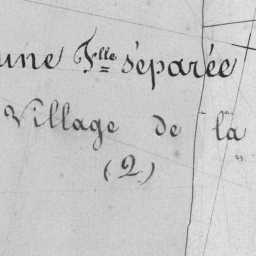 une Flle séparée
Village de la
(2)